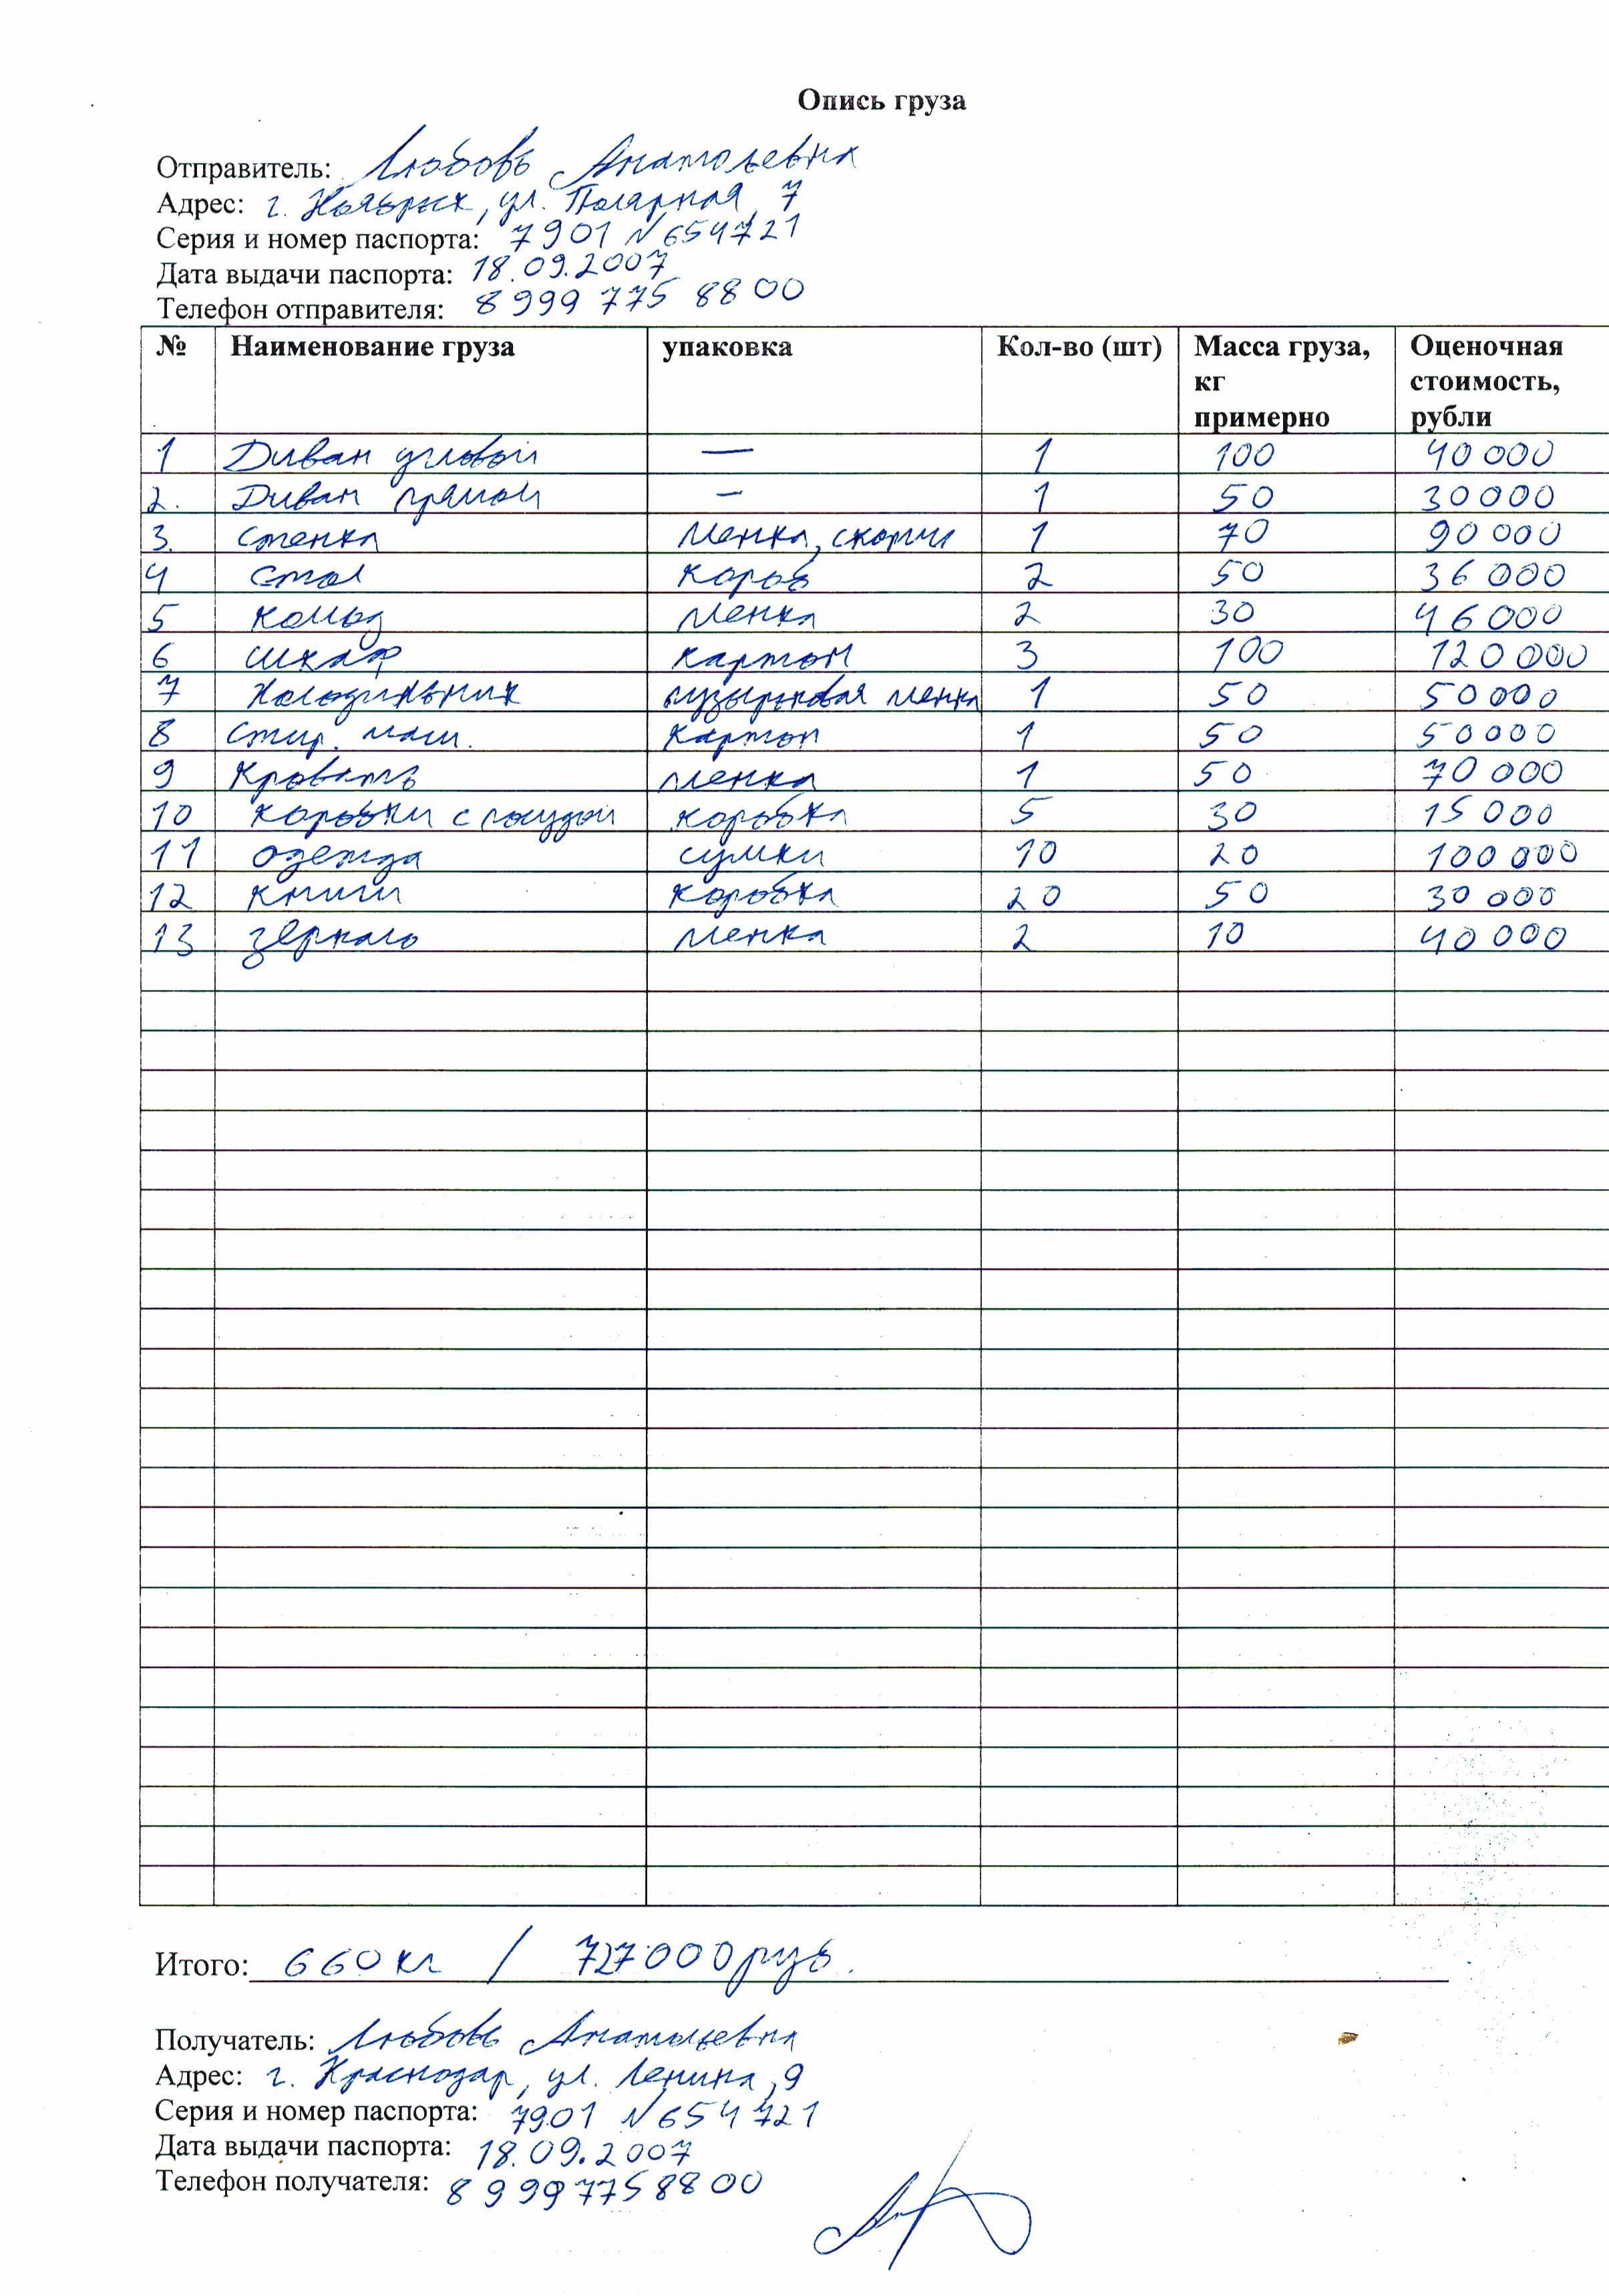 Опись груза
Отправитель: Любовь Анатольевна
Адрес: г. Ноябрьск, ул. Полярная 7
Серия и номер паспорта: 7901 N 654721
Дата выдачи паспорта: 18.09.2007
Телефон отправителя: 8 999 775 88 00
№ Наименование груза упаковка Кол-во (шт) Масса груза, кг примерно Оценочная стоимость, рубли
1 Диван угловой — 1 100 40 000
2. Диван прямой – 1 50 30 000
3. стенка пленка, скотч 1 70 90 000
4 стол короб 2 50 36 000
5 комод пленка 2 30 46 000
6 шкаф картон 3 100 120 000
7 Холодильник пузырьковая пленка 1 50 50 000
8 Стир. маш. картон 1 50 50 000
9 Кровать пленка 1 50 70 000
10 Коробки с посудой коробка 5 30 15 000
11 одежда сумки 10 20 100 000
12 книги коробка 20 50 30 000
13 зеркало пленка 2 10 40 000
Итого: 660 кг / 727 000 руб.
Получатель: Любовь Анатольевна
Адрес: г. Краснодар, ул. Ленина, 9
Серия и номер паспорта: 7901 N 654721
Дата выдачи паспорта: 18.09.2007
Телефон получателя: 8 999 775 88 00